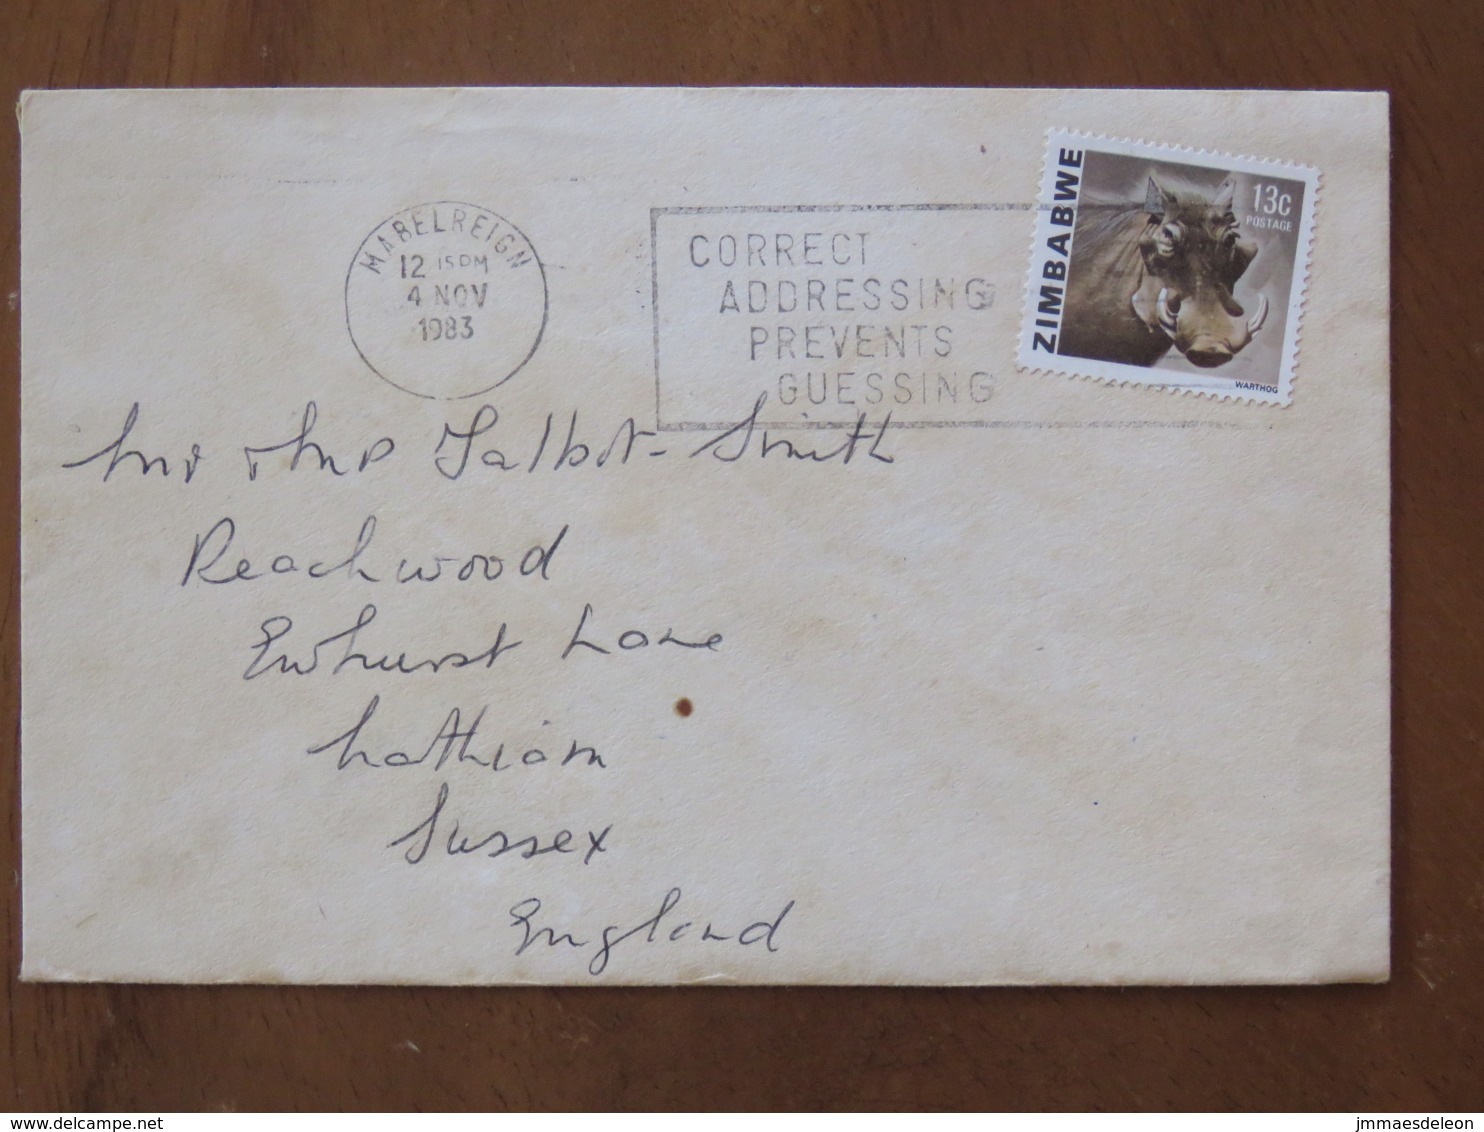 MABELREIGN
12 15PM
4 NOV
1983
CORRECT
ADDRESSING
PREVENTS
GUESSING
ZIMBABWE
13c
POSTAGE
WARTHOG
Mr & Mrs Talbot-Smith
Beachwood
Ewhurst Lane
Northiam
Sussex
England
www.delcampe.net
jmmaesdeleon